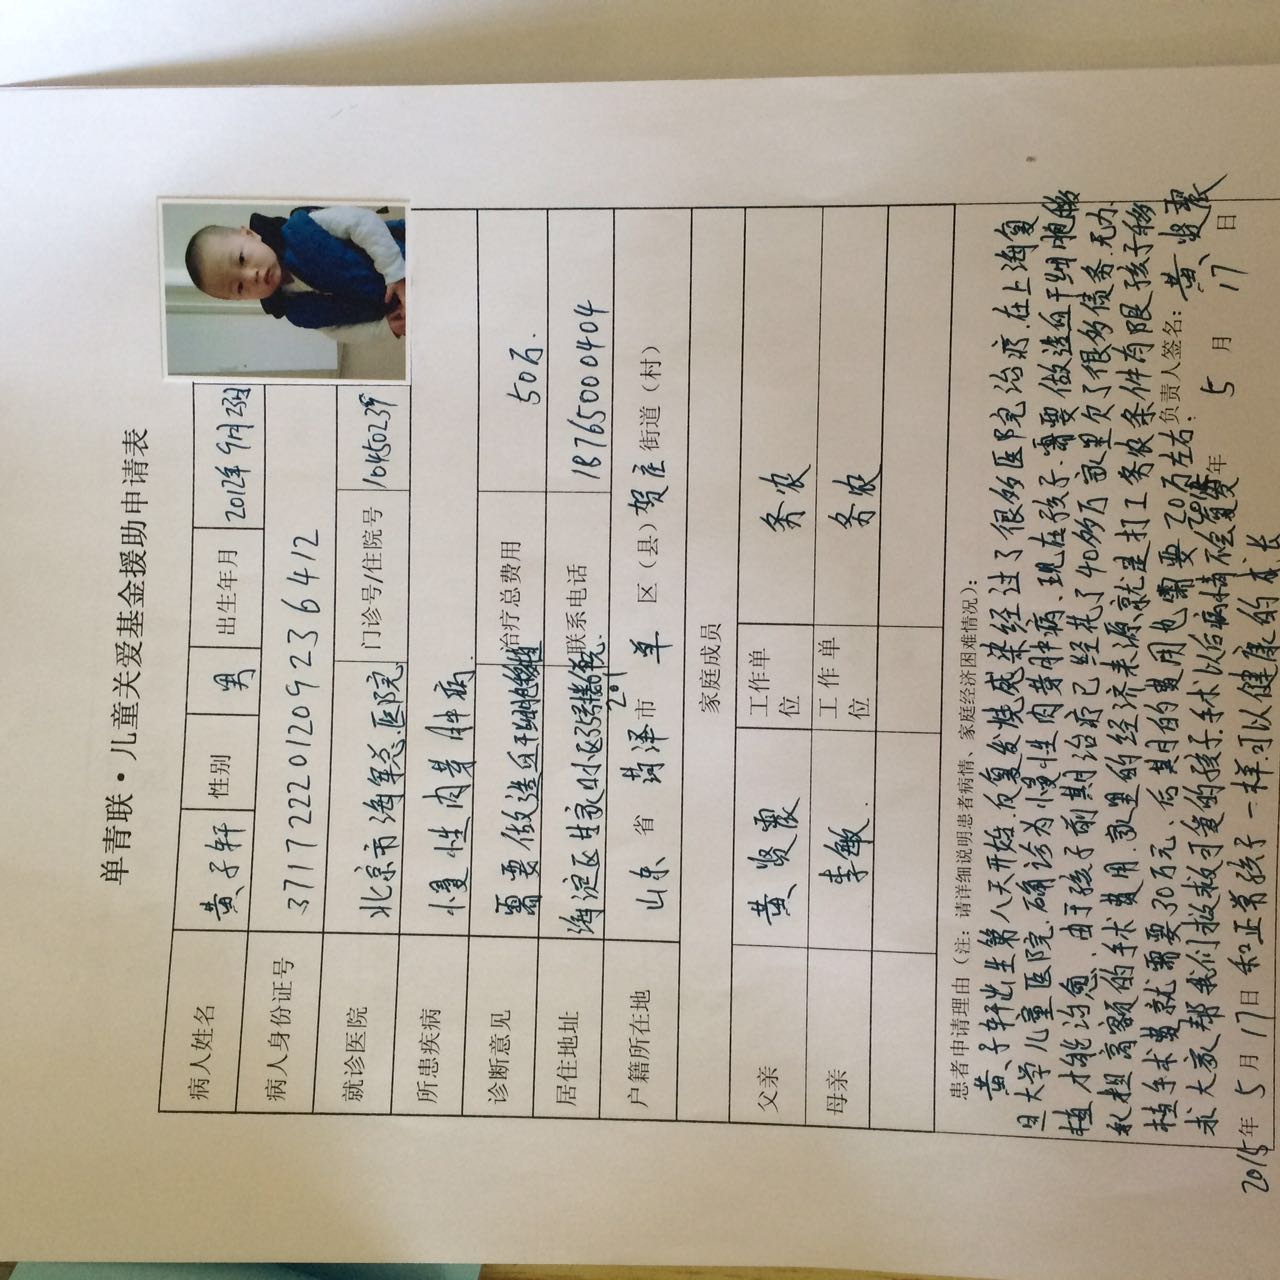 单青联·儿童关爱基金援助申请表
病人姓名 黄子轩 性别 男 出生年月 2012年9月23日
病人身份证号 371722201209236412
就诊医院 北京市海军总医院 门诊号/住院号 10450239
所患疾病 慢性肉芽肿病
诊断意见 需要做造血干细胞移植 治疗总费用 50万.
居住地址 海淀区 联系电话 18765000404
户籍所在地 山东 省 菏泽 市 单 区（县）贺庄 街道（村）
家庭成员
父亲 黄贤震 工作单位 务农
母亲 李敏. 工作单位 务农
患者申请理由（注：请详细说明患者病情、家庭经济困难情况）：
黄子轩出生第八天开始.反复发烧感染经过了很多医院治疗.在上海复
旦大学儿童医院.确诊为慢性肉芽肿病、现在孩子.需要做造血干细胞移
植.才能治愈.由于孩子前期治疗已经花了40多万家里欠了很多债务.无力
承担高额的手术费用.家里的经济来源就是打工务农条件有限孩子移
植手术费就需要30万元、后其月的费用也需要20万左右.
求大家帮我们救救可爱的孩子.手术以后病情不会反复
和正常孩子一样.可以健康的成长
负责人签名：黄贤震
2015年5月17日
年 5 月 17 日